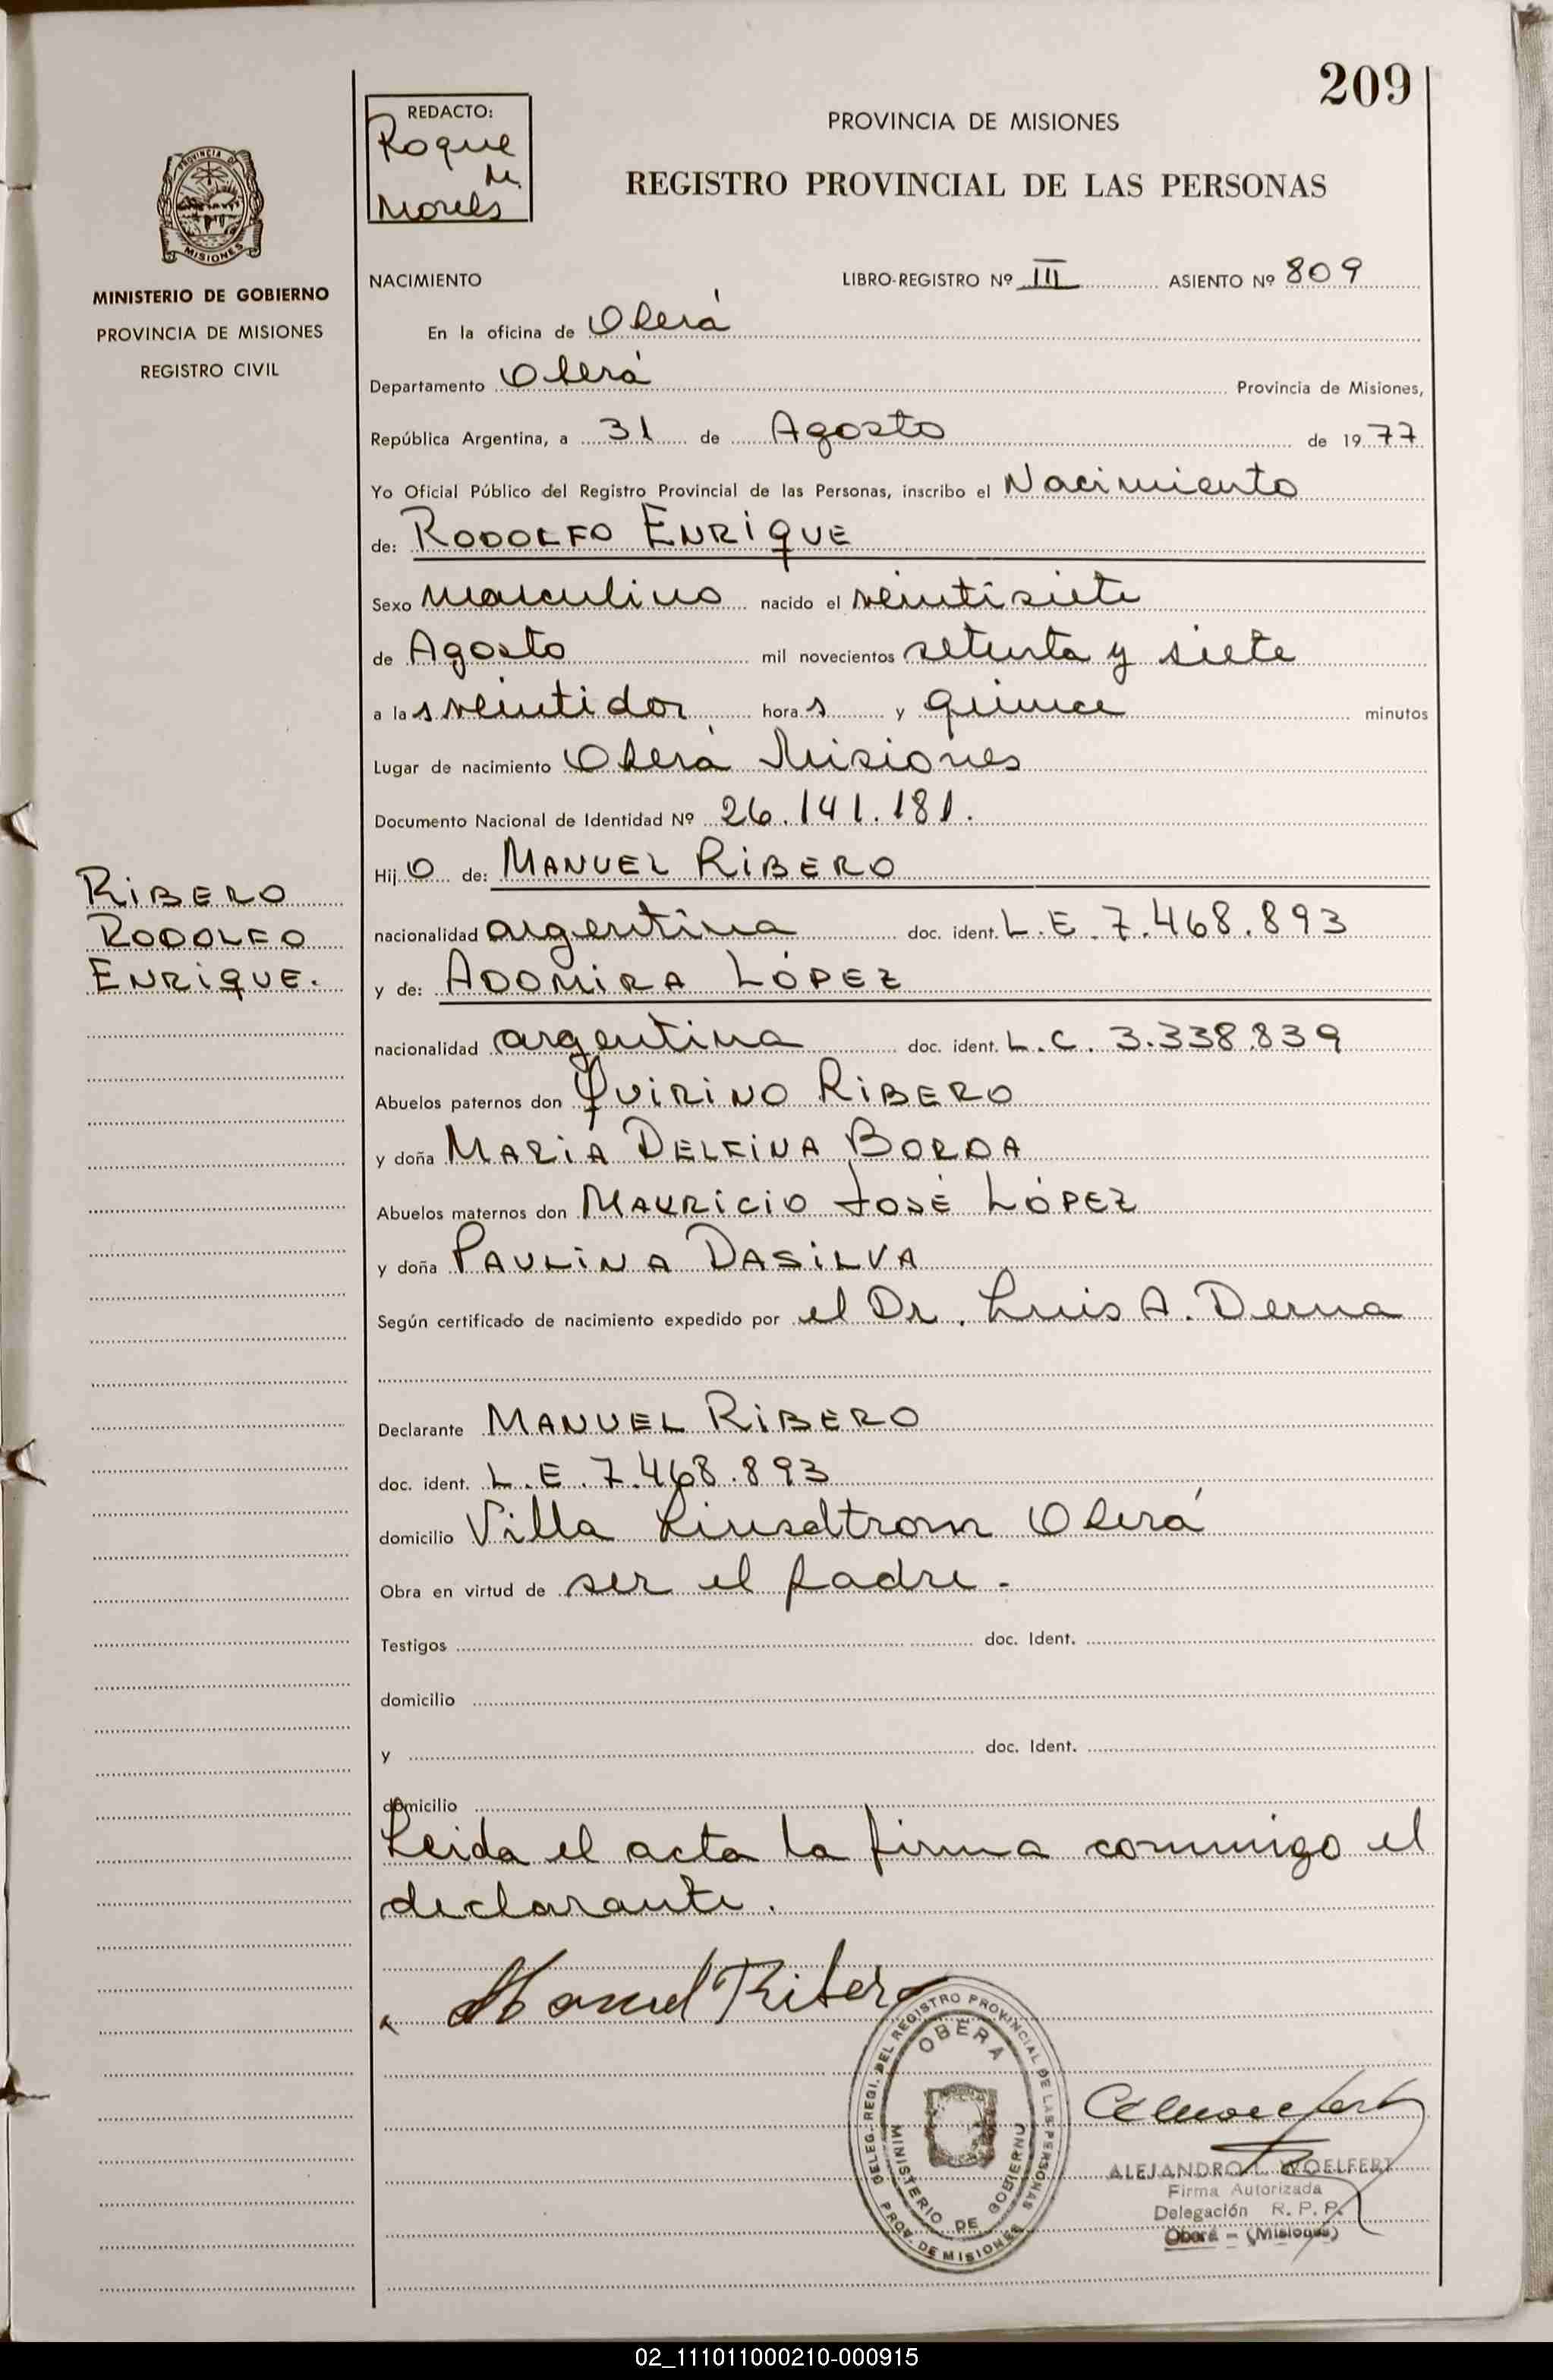 209
REDACTO:
Roque
M.
Morels
PROVINCIA DE MISIONES
REGISTRO PROVINCIAL DE LAS PERSONAS
PROVINCIA DE
MISIONES
MINISTERIO DE GOBIERNO
PROVINCIA DE MISIONES
REGISTRO CIVIL
NACIMIENTO LIBRO-REGISTRO Nº III ASIENTO Nº 809
En la oficina de Oberá
Departamento Oberá Provincia de Misiones,
República Argentina, a 31 de Agosto de 1977
Yo Oficial Público del Registro Provincial de las Personas, inscribo el Nacimiento
de: RODOLFO ENRIQUE
Sexo masculino nacido el veintisiete
de Agosto mil novecientos setenta y siete
a las veintidos horas y quince minutos
Lugar de nacimiento Oberá Misiones
Documento Nacional de Identidad Nº 26.141.181.
Hijo de: MANUEL RIBERO
RIBERO
RODOLFO
ENRIQUE.
nacionalidad argentina doc. ident. L.E. 7.468.893
y de: ADOMIRA LÓPEZ
nacionalidad argentina doc. ident. L.C. 3.338.839
Abuelos paternos don QUIRINO RIBERO
y doña MARIA DELFINA BORDA
Abuelos maternos don MAURICIO JOSÉ LÓPEZ
y doña PAULINA DASILVA
Según certificado de nacimiento expedido por el Dr. Luis A. Derna
Declarante MANUEL RIBERO
doc. ident. L.E. 7.468.893
domicilio Villa Linsdtrom Oberá
Obra en virtud de ser el padre.-
Testigos doc. Ident.
domicilio
y doc. Ident.
domicilio
Leida el acta la firma conmigo el
declarante.
Manuel Ribero
DELEG. REGI. DEL REGISTRO PROVINCIAL DE LAS PERSONAS
PROV. DE MISIONES
OBERA
MINISTERIO DE GOBIERNO
ALEJANDRO L. WOELFERT
Firma Autorizada
Delegación R. P. P.
Oberá - (Misiones)
02_111011000210-000915